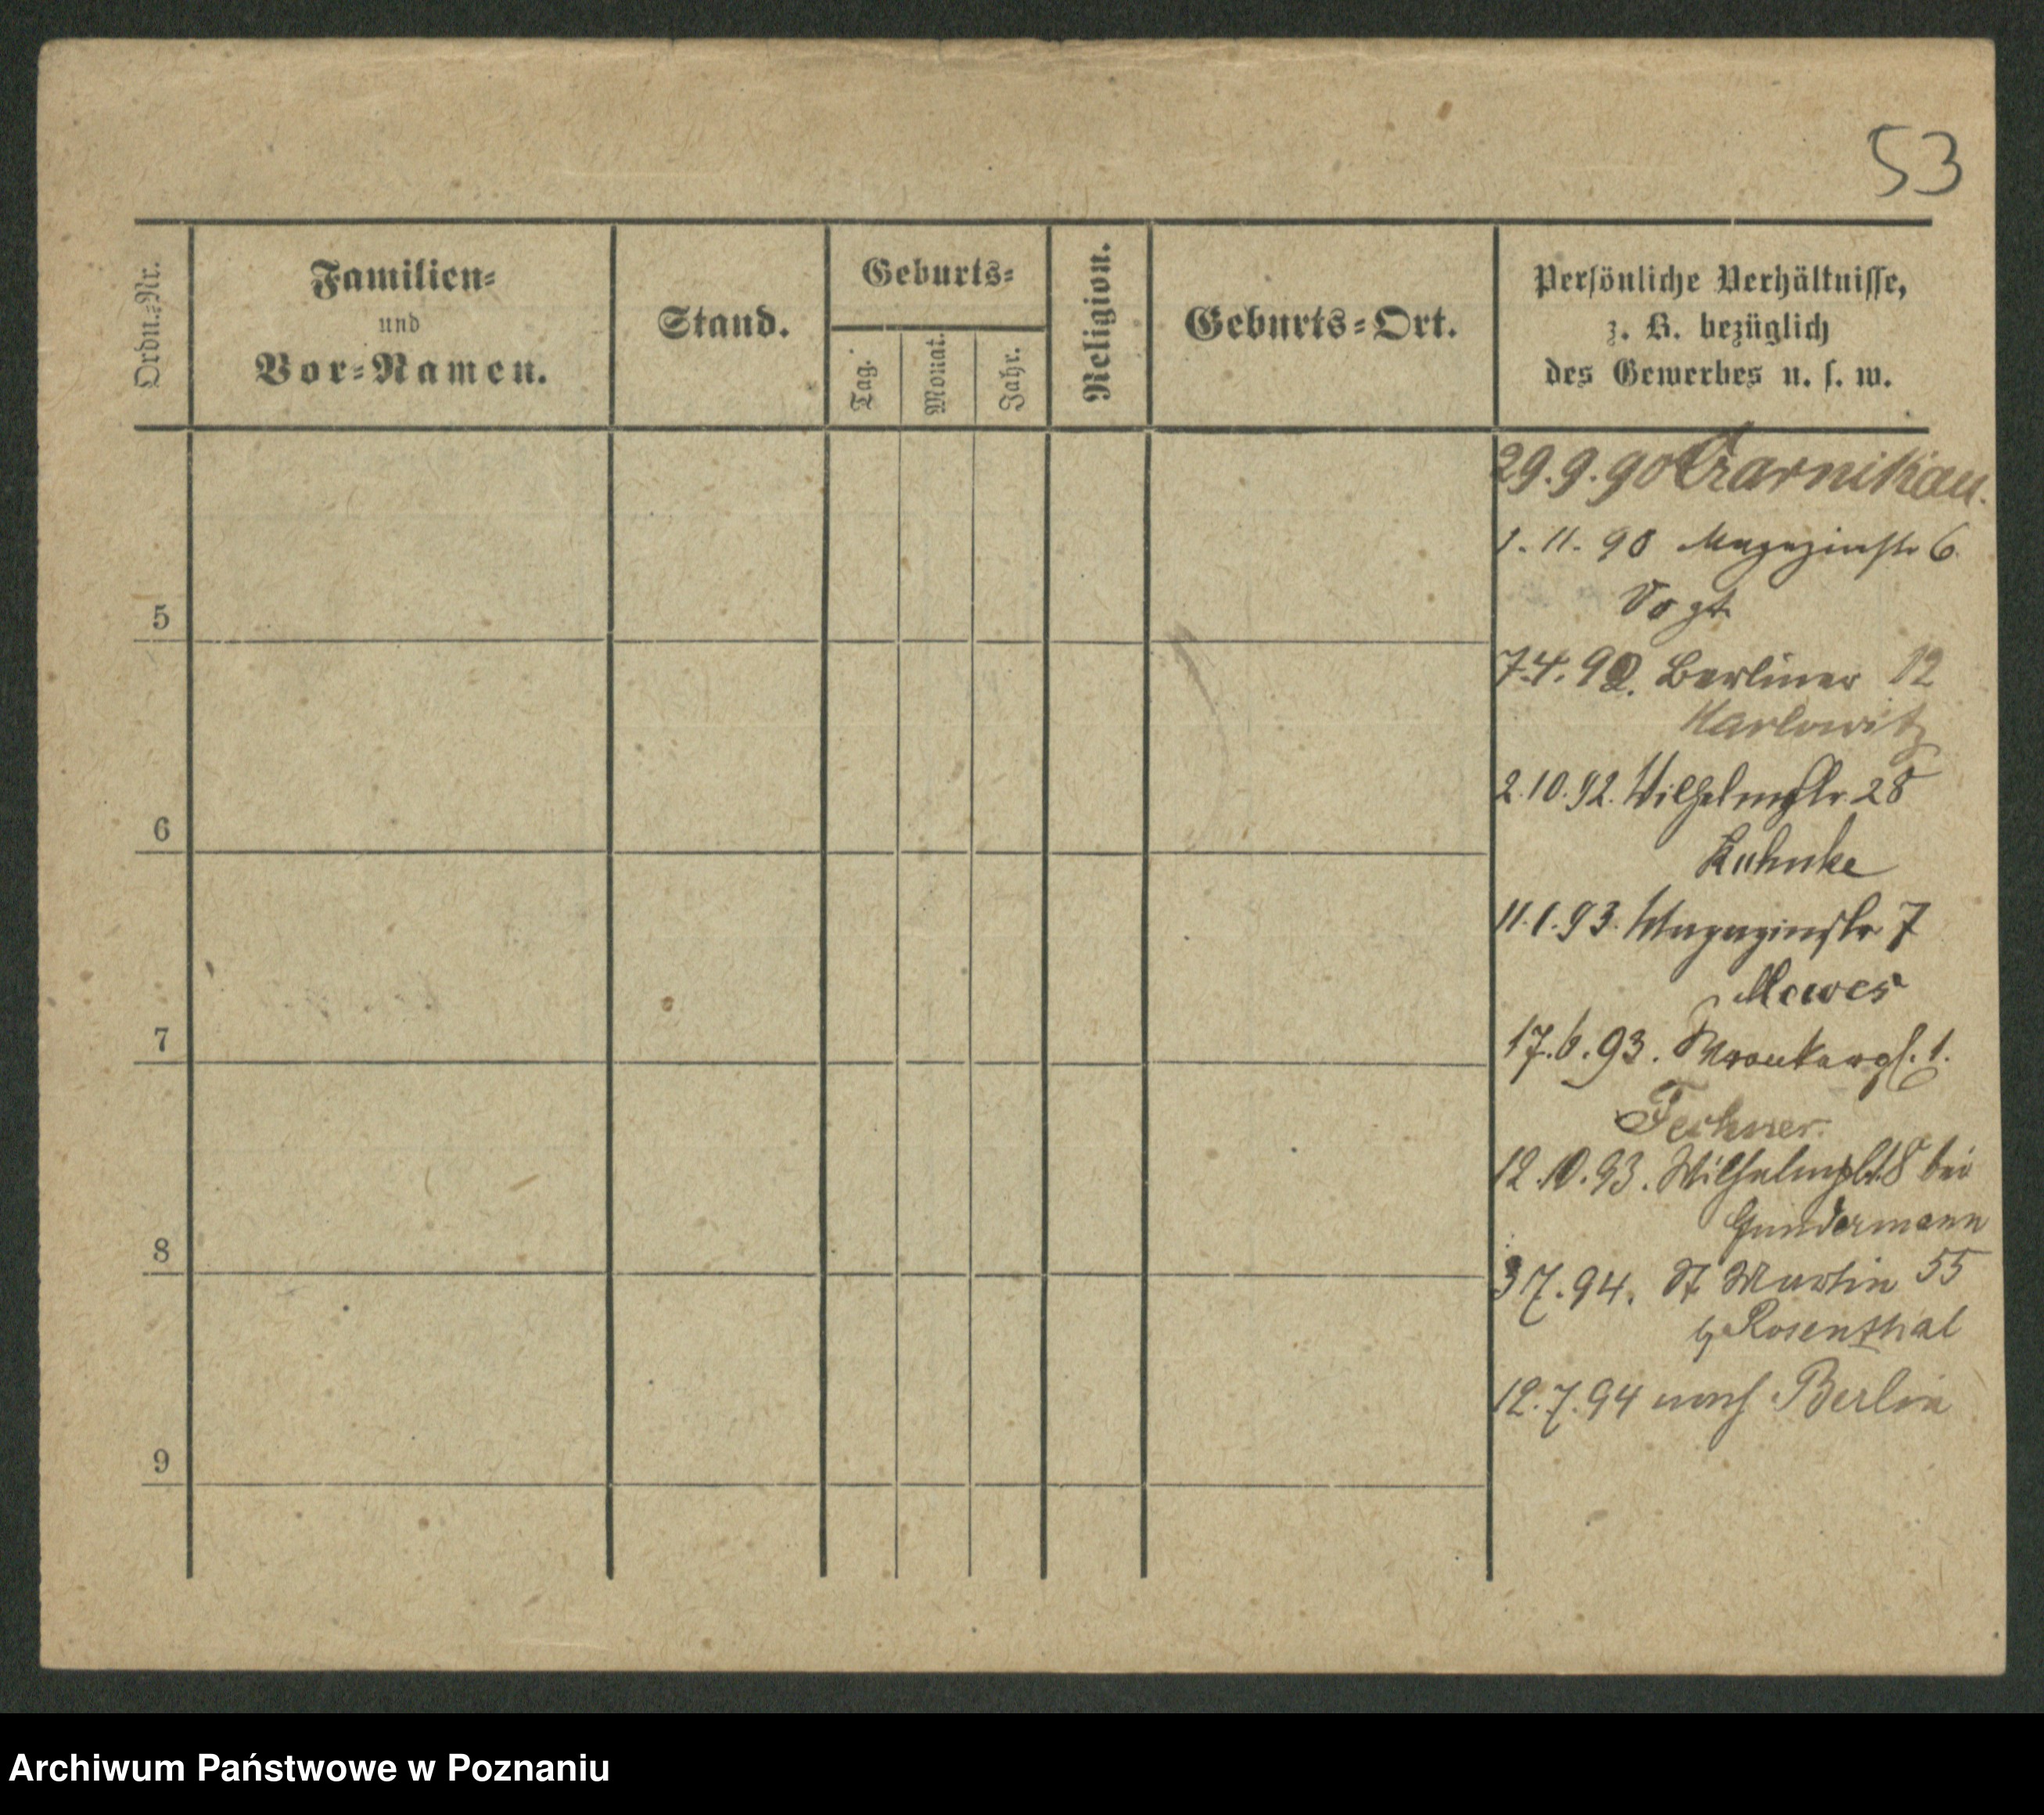 53
Ordn.-Nr.
Familien-
und
Vor-Namen.
Stand.
Geburts-
Tag.
Monat.
Jahr.
Religion.
Geburts-Ort.
Persönliche Verhältnisse,
z. B. bezüglich
des Gewerbes u. s. w.
29.9.90 Czarnikau.
1.11.90 Magazinstr 6.
Vogt
5
7.4.92. Berliner 12
Karlowitz
2.10.92. Wilhelmstr 28
6
Kuhnke
11.1.93. Magazinstr 7
Mewes
7
17.6.93. Wronkergs. 1.
Fechner.
12.10.93. Wilhelmspl. 18 bei
Gundermann
8
3 7.94. St Martin 55
b/ Rosenthal
12.7.94 nach Berlin
9
Archiwum Państwowe w Poznaniu